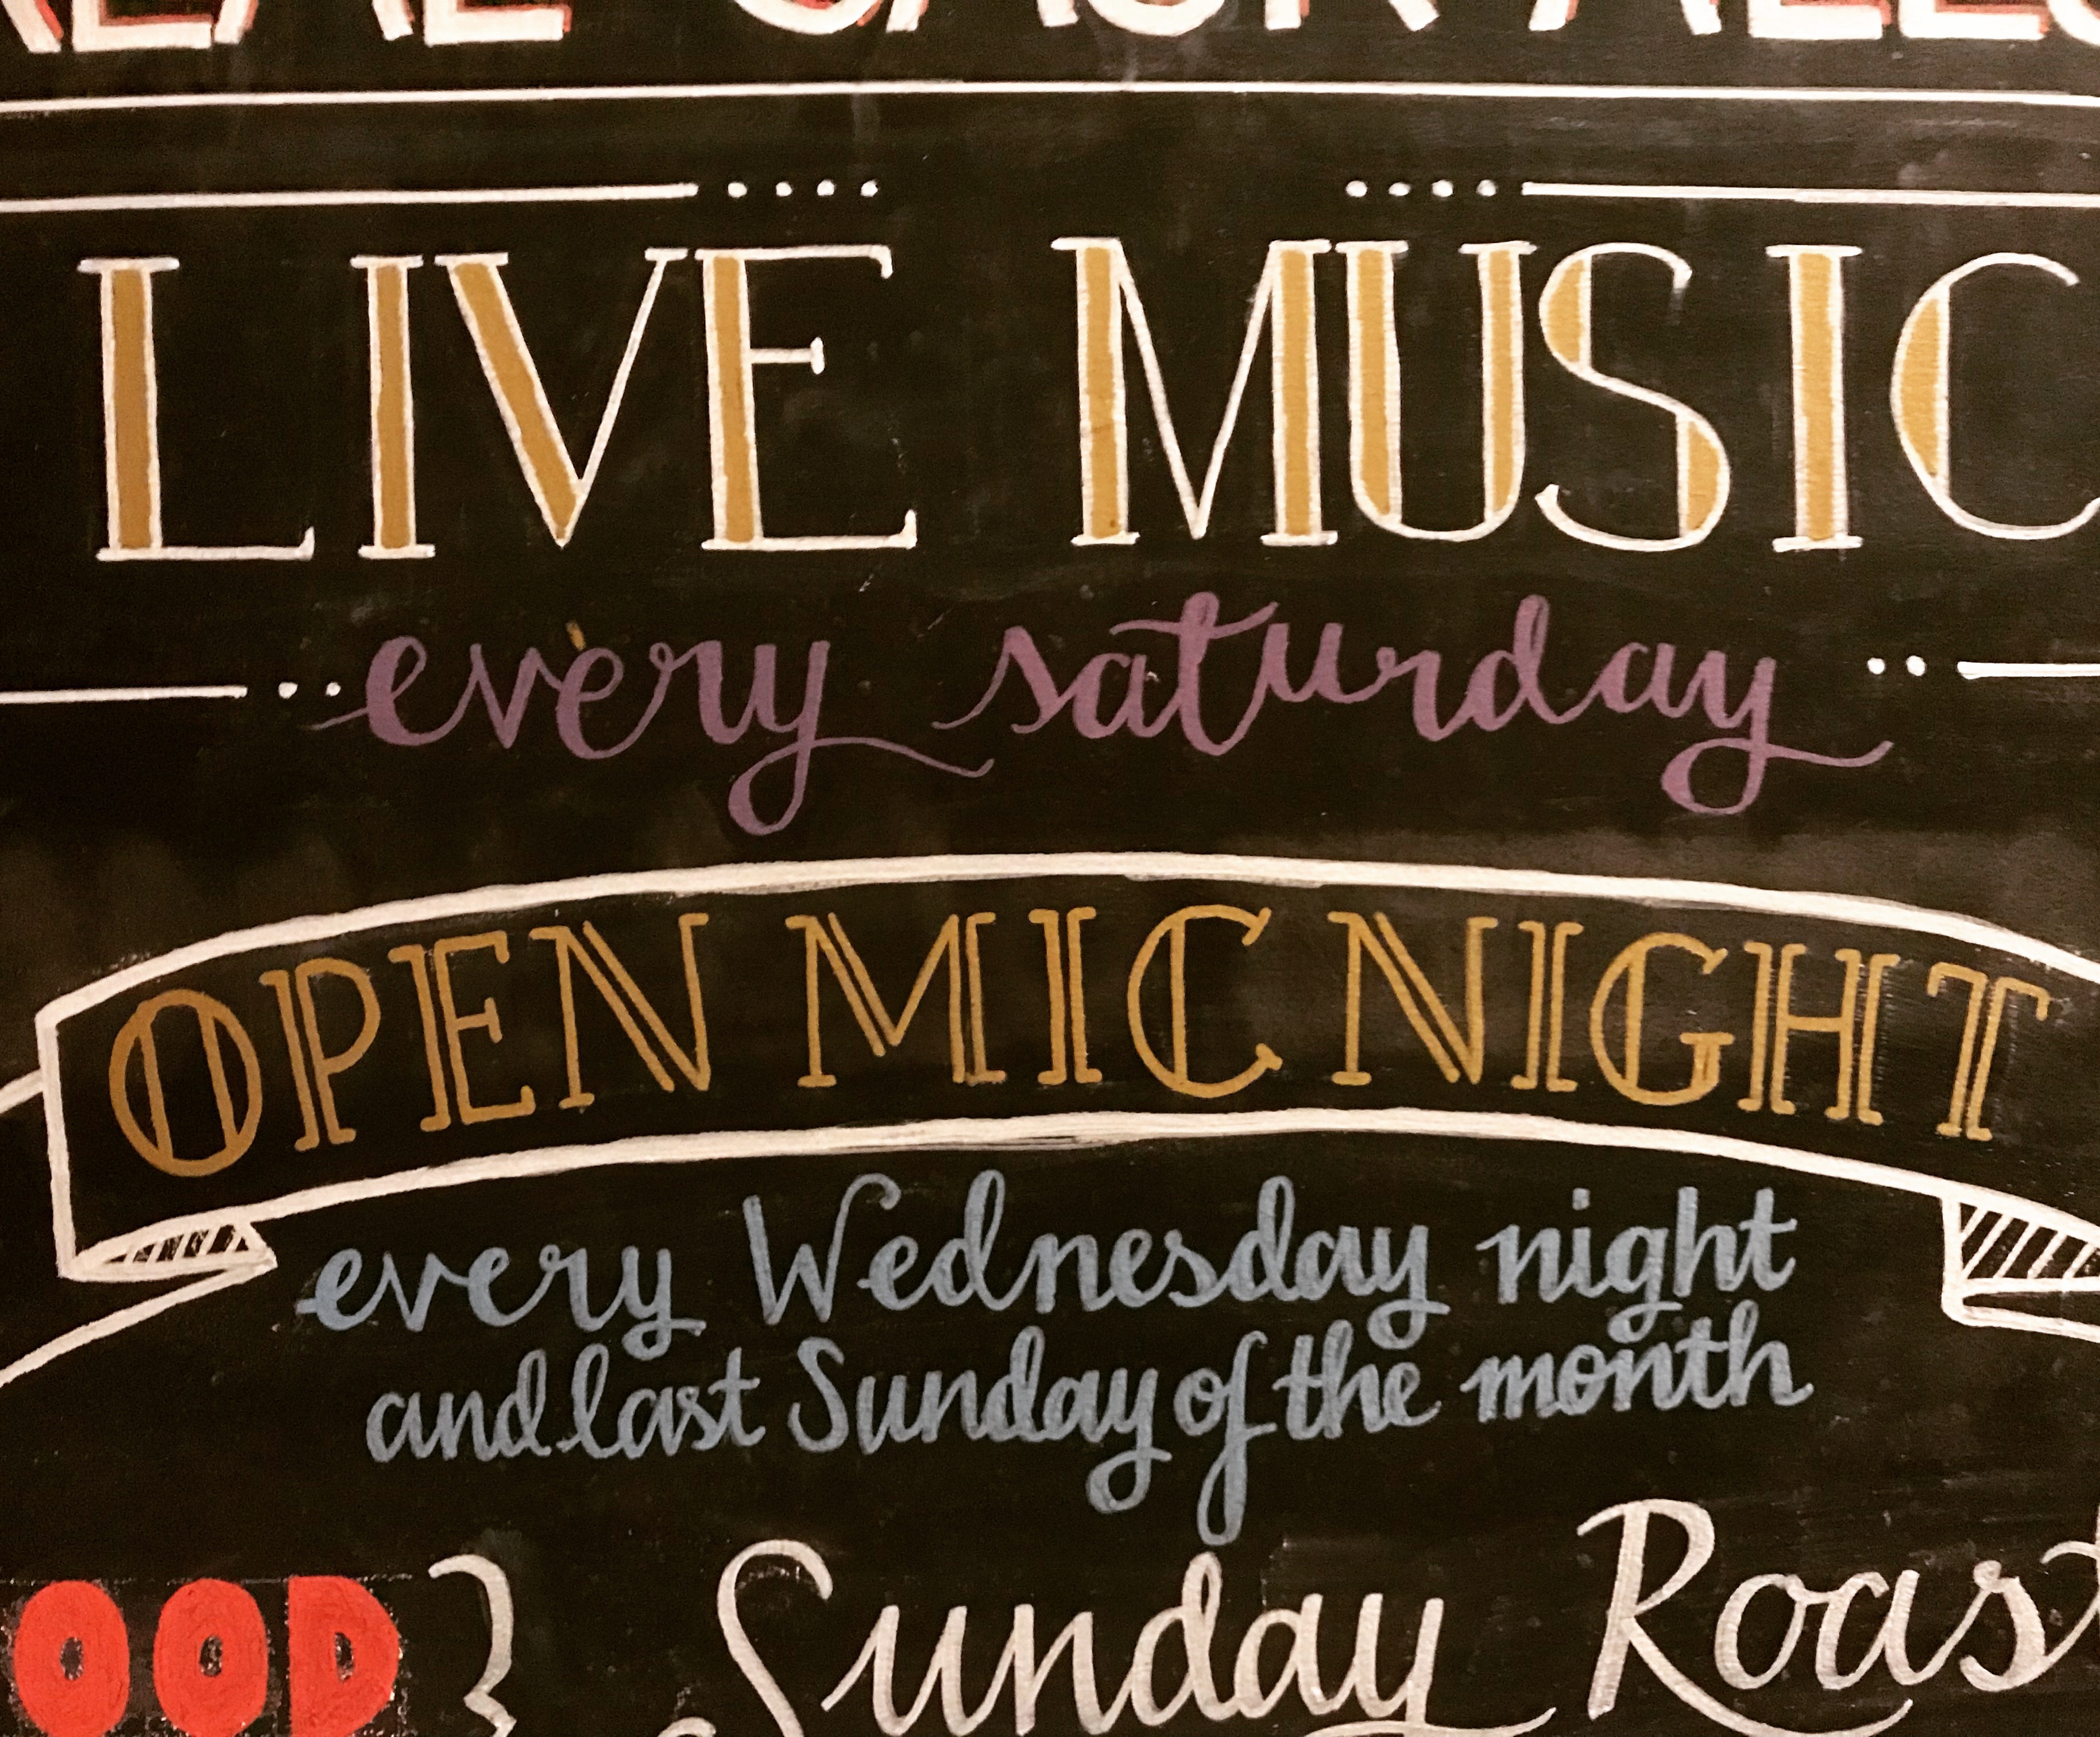 REAL CASK ALES
LIVE MUSIC
every saturday
OPEN MIC NIGHT
every Wednesday night
and last Sunday of the month
OOD Sunday Roast